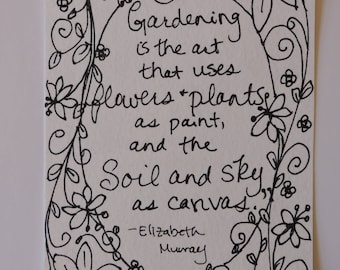 Gardening
is the art
that uses
flowers + plants
as paint,
and the
Soil and Sky
as canvas."
-Elizabeth
Murray